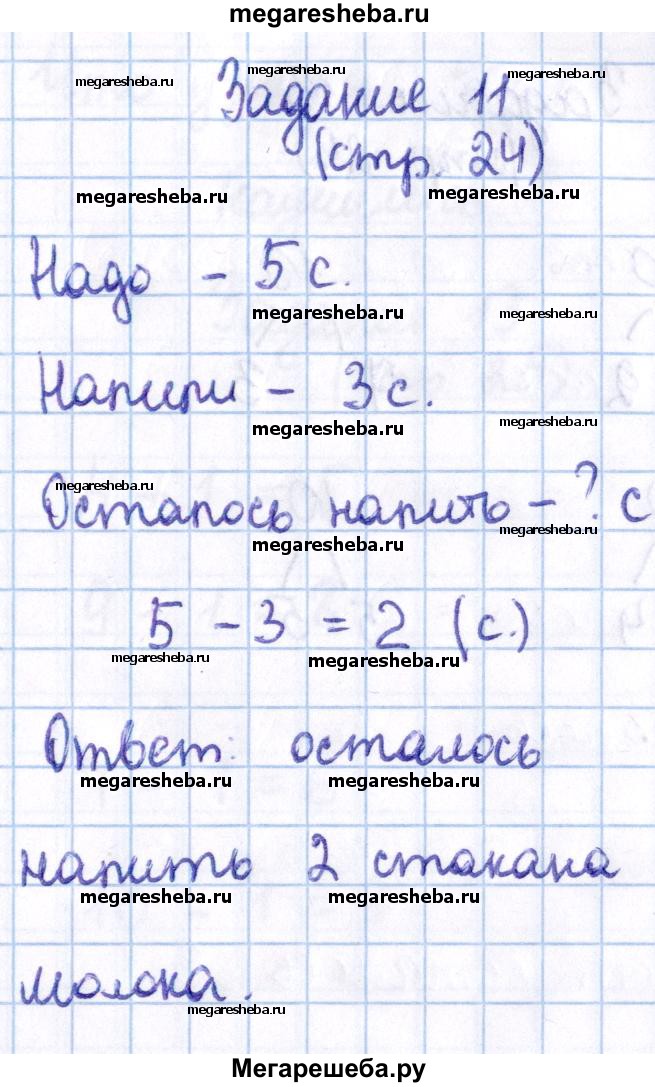 megaresheba.ru
megaresheba.ru megaresheba.ru megaresheba.ru
Задание 11
(стр. 24)
megaresheba.ru megaresheba.ru
Надо - 5 с.
megaresheba.ru megaresheba.ru
Налили - 3 с.
megaresheba.ru megaresheba.ru
megaresheba.ru
Осталось налить - ? с
megaresheba.ru megaresheba.ru
5 - 3 = 2 (с.)
megaresheba.ru megaresheba.ru
Ответ: осталось
megaresheba.ru megaresheba.ru
налить 2 стакана
megaresheba.ru megaresheba.ru
молока.
megaresheba.ru
Мегарешеба.ру